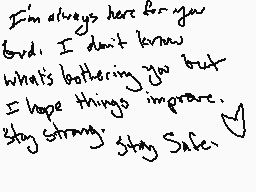 I'm always here for you
bud. I don't know
what's bothering you but
I hope things improve.
Stay strong. Stay Safe.